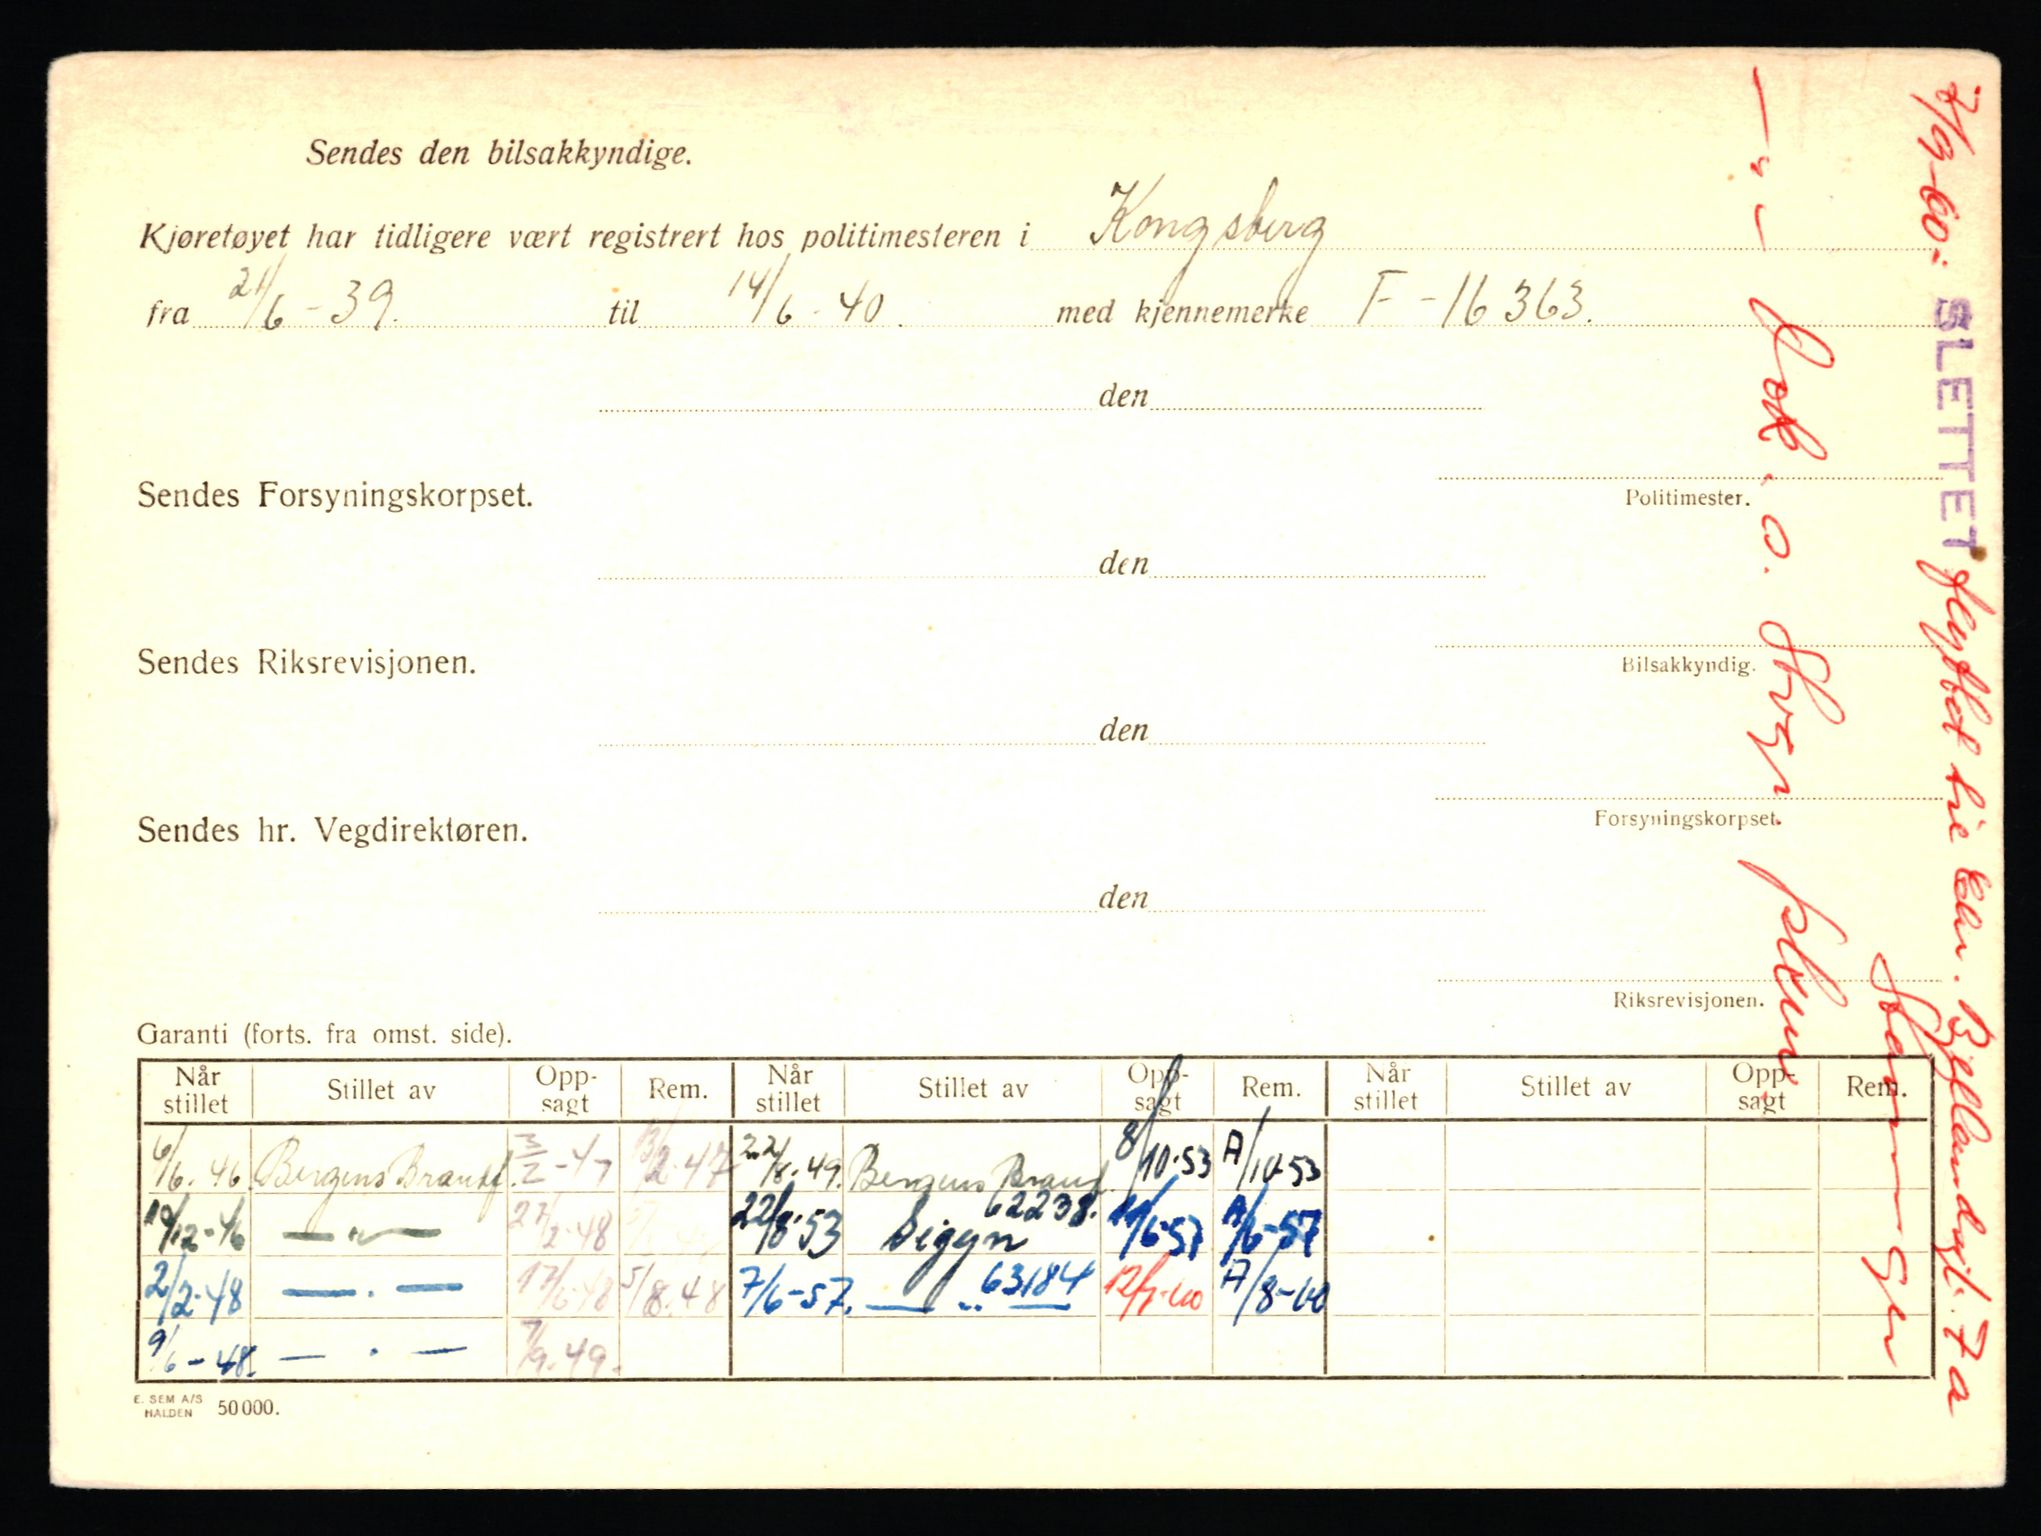 Sendes den bilsakkyndige.
Kjøretøyet har tidligere vært registrert hos politimesteren i Kongsberg
fra 21/6-39. til 14/6-40. med kjennemerke F-16363.
den
Politimester.
Sendes Forsyningskorpset.
den
Bilsakkyndig.
Sendes Riksrevisjonen.
den
Forsyningskorpset.
Sendes hr. Vegdirektøren.
den
Riksrevisjonen.
Garanti (forts. fra omst. side).
Når stillet Stillet av Opp-sagt Rem. Når stillet Stillet av Opp-sagt Rem. Når stillet Stillet av Opp-sagt Rem.
6/6-46 Bergens Brandf. 3/2-47 13/2-47 22/8-49. Bergens Brandf. 8/10-53 A/10-53
19/12-46 — " — 27/2-48 22/8-53 Sigyn 62238. 11/6-57 A/6-57
2/2-48 — " — 17/6-48 5/8-48 7/6-57. — " — 63184 12/7-60 A/8-60
9/6-48. — " — 7/9-49.
E. SEM A/S
HALDEN 50000.
7/9-60: SLETTET flyttet til Chr. Bjellandsgt. 7a
Stavanger
— " —